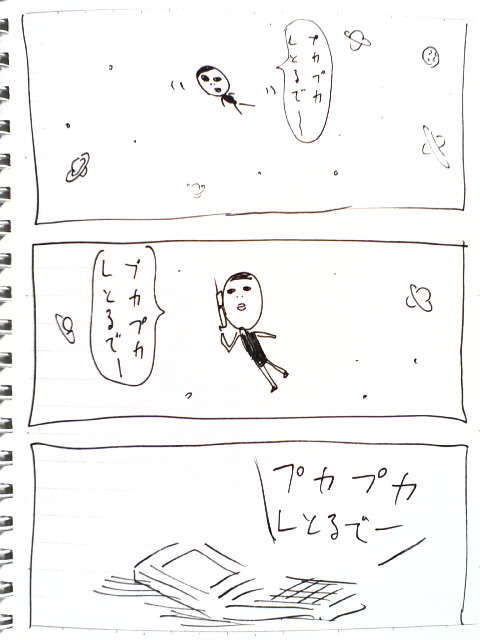 プカプカ
しとるでー
プカプカ
しとるでー
プカプカ
しとるでー